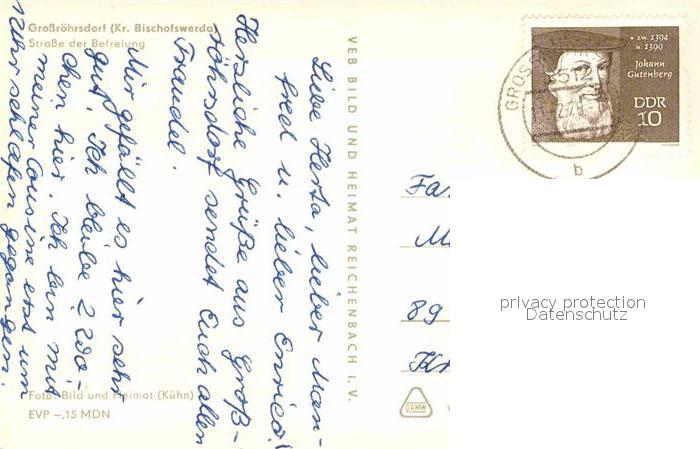 Großröhrsdorf (Kr. Bischofswerda)
Straße der Befreiung
Liebe Herta, lieber Man-
fred u. lieber Enrico!
Herzliche Grüße aus Groß-
röhrsdorf sendet Euch allen
Traudel.
Mir gefällt es hier sehr
gut. Ich bleibe 2 Wo-
chen hier. Ich bin mit
meiner Cousine erst um
Uhr schlafen gegangen.
Foto: Bild und Heimat (Kühn)
EVP -,15 MDN
VEB BILD UND HEIMAT REICHENBACH I. V.
• zw. 1394
u. 1399
Johann
Gutenberg
DDR
10
GROSS
b
Fa
M
89
DAMW
V
privacy protection
Datenschutz